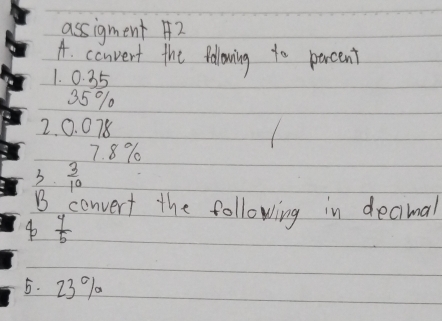 assigment #2
A. convert the following to percent
1. 0.35
35%
2. 0.078
7.8%
3. 3/10
B convert the following in decimal
4 4/5
5. 23%